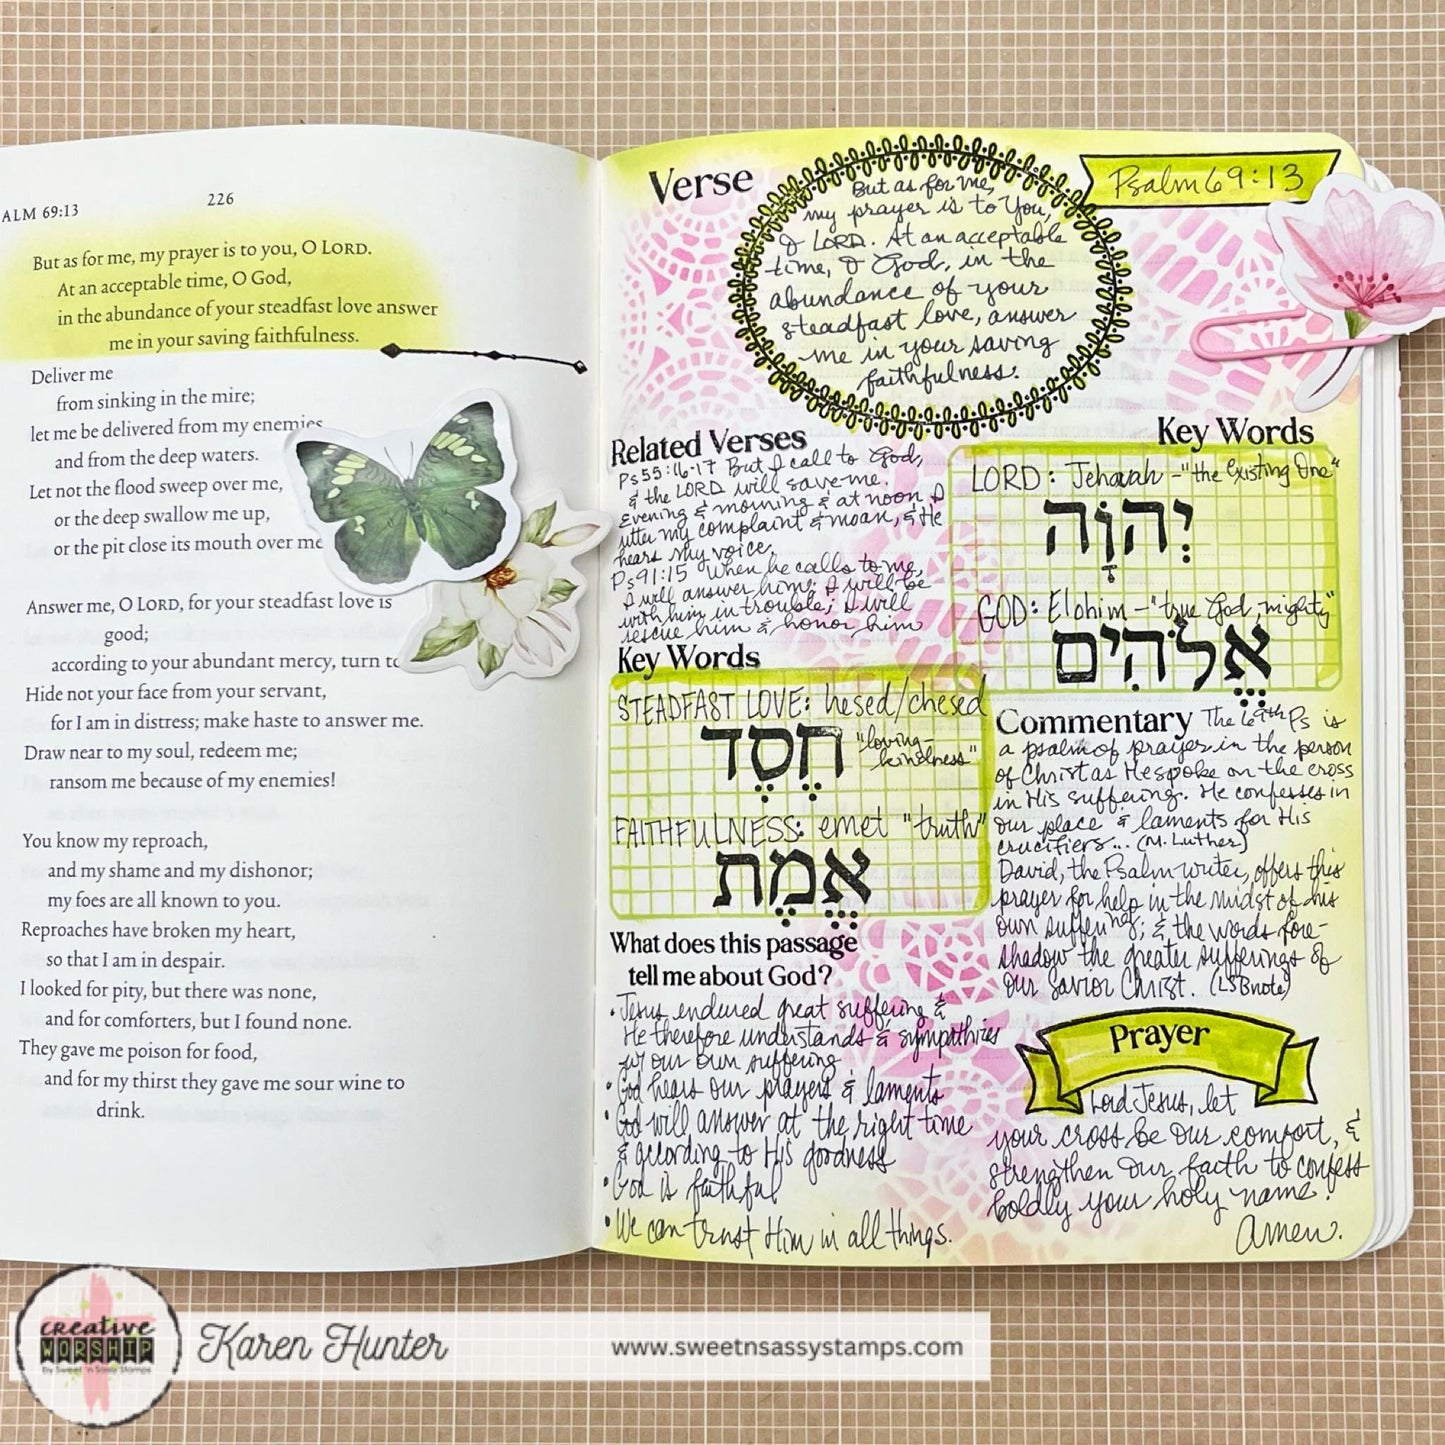 226
ALM 69:13
But as for me, my prayer is to you, O LORD.
At an acceptable time, O God,
in the abundance of your steadfast love answer
me in your saving faithfulness.
Deliver me
from sinking in the mire;
let me be delivered from my enemies
and from the deep waters.
Let not the flood sweep over me,
or the deep swallow me up,
or the pit close its mouth over me
Answer me, O LORD, for your steadfast love is
good;
according to your abundant mercy, turn to
Hide not your face from your servant,
for I am in distress; make haste to answer me.
Draw near to my soul, redeem me;
ransom me because of my enemies!
You know my reproach,
and my shame and my dishonor;
my foes are all known to you.
Reproaches have broken my heart,
so that I am in despair.
I looked for pity, but there was none,
and for comforters, but I found none.
They gave me poison for food,
and for my thirst they gave me sour wine to
drink.
Verse
But as for me,
my prayer is to You,
O LORD. At an acceptable
time, O God, in the
abundance of your
steadfast love, answer
me in your saving
faithfulness.
Psalm 69:13
Related Verses
Ps 55:16-17 But I call to God,
& the LORD will save me.
Evening & morning & at noon I
utter my complaint & moan, & He
hears my voice.
Ps 91:15 When he calls to me,
I will answer him; I will be
with him in trouble; I will
rescue him & honor him
Key Words
LORD: Jehovah - "the Existing One"
יְהוָֹה
GOD: Elohim - "true God, mighty"
אֱלֹהִים
Key Words
STEADFAST LOVE: hesed/chesed
חֶסֶד "loving-
kindness"
FAITHFULNESS: emet "truth"
אֱמֶת
What does this passage
tell me about God?
• Jesus endured great suffering &
He therefore understands & sympathizes
w/ our own suffering
• God hears our prayers & laments
• God will answer at the right time
& according to His goodness
• God is faithful
• We can trust Him in all things.
Commentary The 69th Ps is
a psalm of prayer in the person
of Christ as He spoke on the cross
in His suffering. He confesses in
our place & laments for His
crucifiers... (M. Luther)
David, the Psalm writer, offers this
prayer for help in the midst of his
own suffering; & the words fore-
shadow the greater sufferings of
our Savior Christ. (LSB note)
Prayer
Lord Jesus, let
your cross be our comfort, &
strengthen our faith to confess
boldly your holy name.
Amen.
creative
WORSHIP
by Sweet 'n Sassy Stamps
Karen Hunter
www.sweetnsassystamps.com